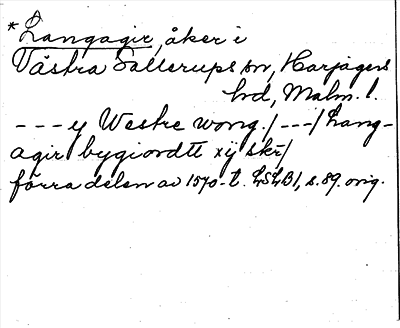 *Langagir, åker i
Västra Sallerups sn, Harjagers
hd, Malm. l.
--- y Westre wong. / --- / Lang-
agir bygiordtt xij skr /
förra delen av 1570-t. LSLB1, s. 89. orig.